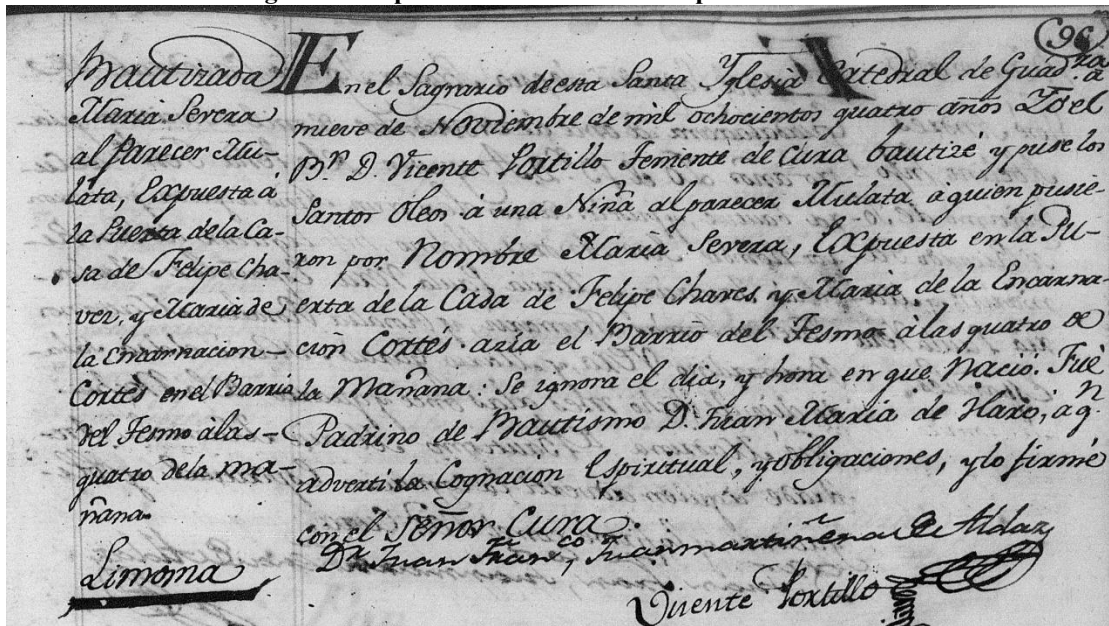 96
Bautizada
Maria Severa
al parecer Mu-
lata, Expuesta à
la Puerta dela Ca-
sa de Felipe Cha-
vez, y Maria de
la Encarnacion
Cortès enel Barrio
del Tesmo alas
quatro dela ma-
ñana.
Limoma
En el Sagrario de esta Santa Yglesia Catedral de Guadra. a
nueve de Noviembre de mil ochocientos quatro años Yo el
Br. D. Vicente Portillo Teniente de Cura bautizé y puse los
Santos Oleos à una Niña al parecer Mulata à quien pusie-
ron por Nombre Maria Severa, Expuesta en la Pu-
erta de la Casa de Felipe Chaves, y Maria de la Encarna-
ción Cortés azia el Barrio del Tesmo à las quatro de
la Mañana: Se ignora el dia, y hora en que Nació. Fuè
Padrino de Bautismo D. Juan Maria de Haro, a qn.
adverti la Cognacion Espiritual, y obligaciones, y lo firmé
con el Señor Cura.
Dr. Juan Franco. Juanmartiñena de Aldaz
Vicente Portillo